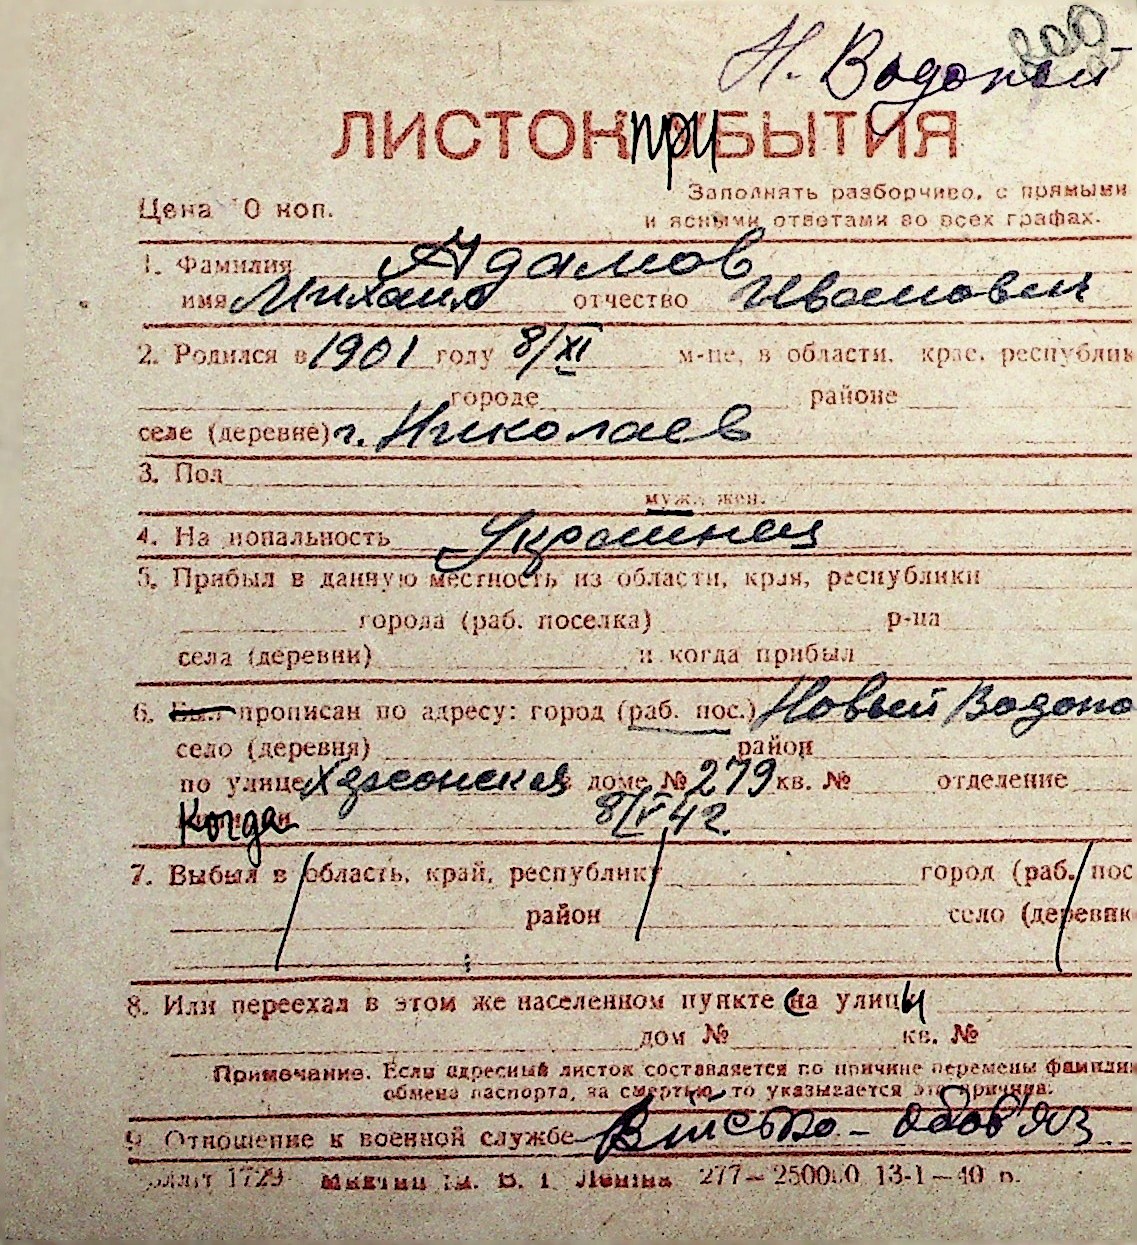 Н. Водопой
ЛИСТОК при БЫТИЯ
Цена 0 коп.
Заполнять разборчиво, с прямыми
и ясными ответами во всех графах.
1. Фамилия Адамов
имя Михаил отчество Иванович
2. Родился в 1901 году 8/XI м-це, в области, крае, республик
городе районе
селе (деревне) г. Николаев
3. Пол
муж. жен.
4. На иональность Украинец
5. Прибыл в данную местность из области, края, республики
города (раб. поселка) р-на
села (деревни) и когда прибыл
6. Был прописан по адресу: город (раб. пос.) Новый Водопо
село (деревня) район
по улице Херсонская доме № 279 кв. № отделение
Когда 8/IV 42
7. Выбыл в область, край, республику город (раб. пос
район село (деревню
8. Или переехал в этом же населенном пункте са улицы
дом № кв. №
Примечание. Если адресный листок составляется по причине перемены фамилии
обмена паспорта, за смертью, то указывается эта причина.
9. Отношение к военной службе Військо-обов'яз
1729 ім. В. І. Леніна 277—250000 13-1—40 п.